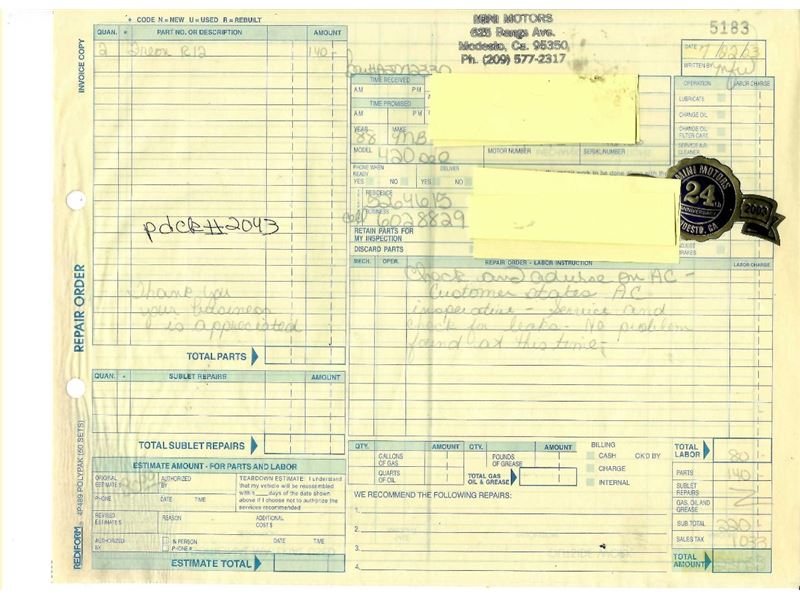 * CODE N=NEW U=USED R=REBUILT
QUAN. * PART NO. OR DESCRIPTION AMOUNT
2 Freon R12 140-
INVOICE COPY
MINI MOTORS
625 Bangs Ave.
Modesto, Ca. 95350
Ph. (209) 577-2317
5183
DATE
WRITTEN BY
TIME RECEIVED
AM PM
TIME PROMISED
AM PM
YEAR MAKE
88 MB
MODEL MOTOR NUMBER SERIAL NUMBER
420
PHONE WHEN READY DELIVER
YES NO YES NO
RESIDENCE
5264615
BUSINESS
cell 6028829
RETAIN PARTS FOR
MY INSPECTION
DISCARD PARTS
OPERATION LABOR CHARGE
LUBRICATE
CHANGE OIL
CHANGE OIL
FILTER CARE
SERVICE AIR
CLEANER
MINI MOTORS
24th
ANNIVERSARY
MODESTO, CA
2003
ADJUST
BRAKES
MECH. OPER. REPAIR ORDER - LABOR INSTRUCTION LABOR CHARGE
Check and advise on AC -
Customer states AC
inoperative - service and
check for leaks - No problem
found at this time -
pdck#2043
REPAIR ORDER
Thank you
your business
is appreciated
TOTAL PARTS
QUAN. * SUBLET REPAIRS AMOUNT
TOTAL SUBLET REPAIRS
ESTIMATE AMOUNT - FOR PARTS AND LABOR
ORIGINAL
ESTIMATE $
AUTHORIZED
PHONE DATE TIME
TEARDOWN ESTIMATE: I understand
that my vehicle will be reassembled
within days of the date shown
above if I choose not to authorize the
services recommended
REVISED
ESTIMATE $
REASON
ADDITIONAL
COST $
AUTHORIZED
BY
IN PERSON
PHONE #
DATE TIME
ESTIMATE TOTAL
REDIFORM 4P489 POLYPAK (50 SETS)
QTY. AMOUNT QTY. AMOUNT
GALLONS
OF GAS
POUNDS
OF GREASE
QUARTS
OF OIL
TOTAL GAS
OIL & GREASE
BILLING
CASH CK'D BY
CHARGE
INTERNAL
WE RECOMMEND THE FOLLOWING REPAIRS:
1.
2.
3.
4.
TOTAL
LABOR 80-
PARTS 140-
SUBLET
REPAIRS
GAS, OIL AND
GREASE
SUB TOTAL 220-
SALES TAX
TOTAL
AMOUNT